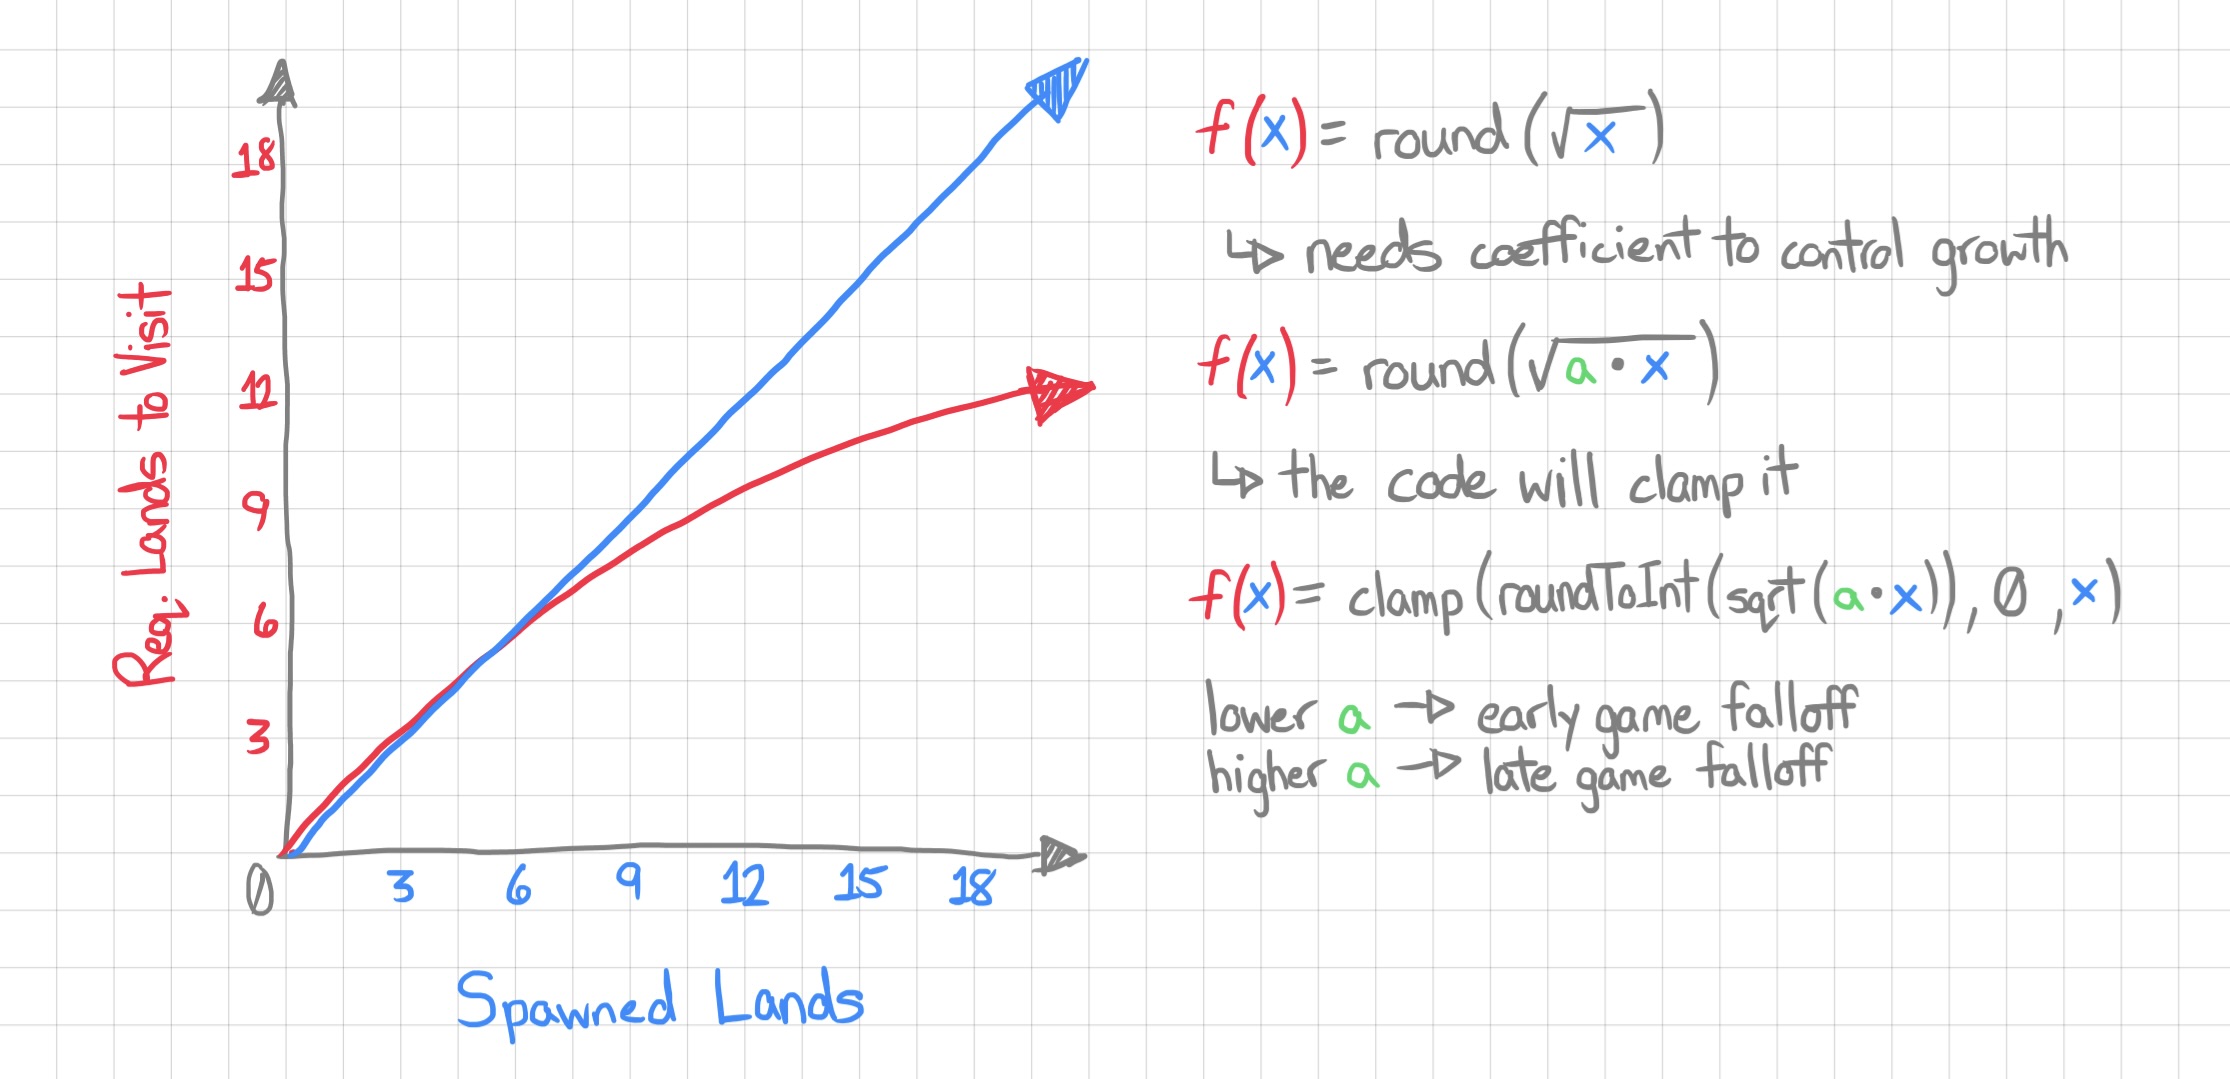 18
15
12
9
6
3
0
Req. Lands to Visit
3 6 9 12 15 18
Spawned Lands
f(x) = round(√x)
↳ needs coefficient to control growth
f(x) = round(√a·x)
↳ the code will clamp it
f(x) = clamp(roundToInt(sqrt(a·x)), 0, x)
lower a → early game falloff
higher a → late game falloff